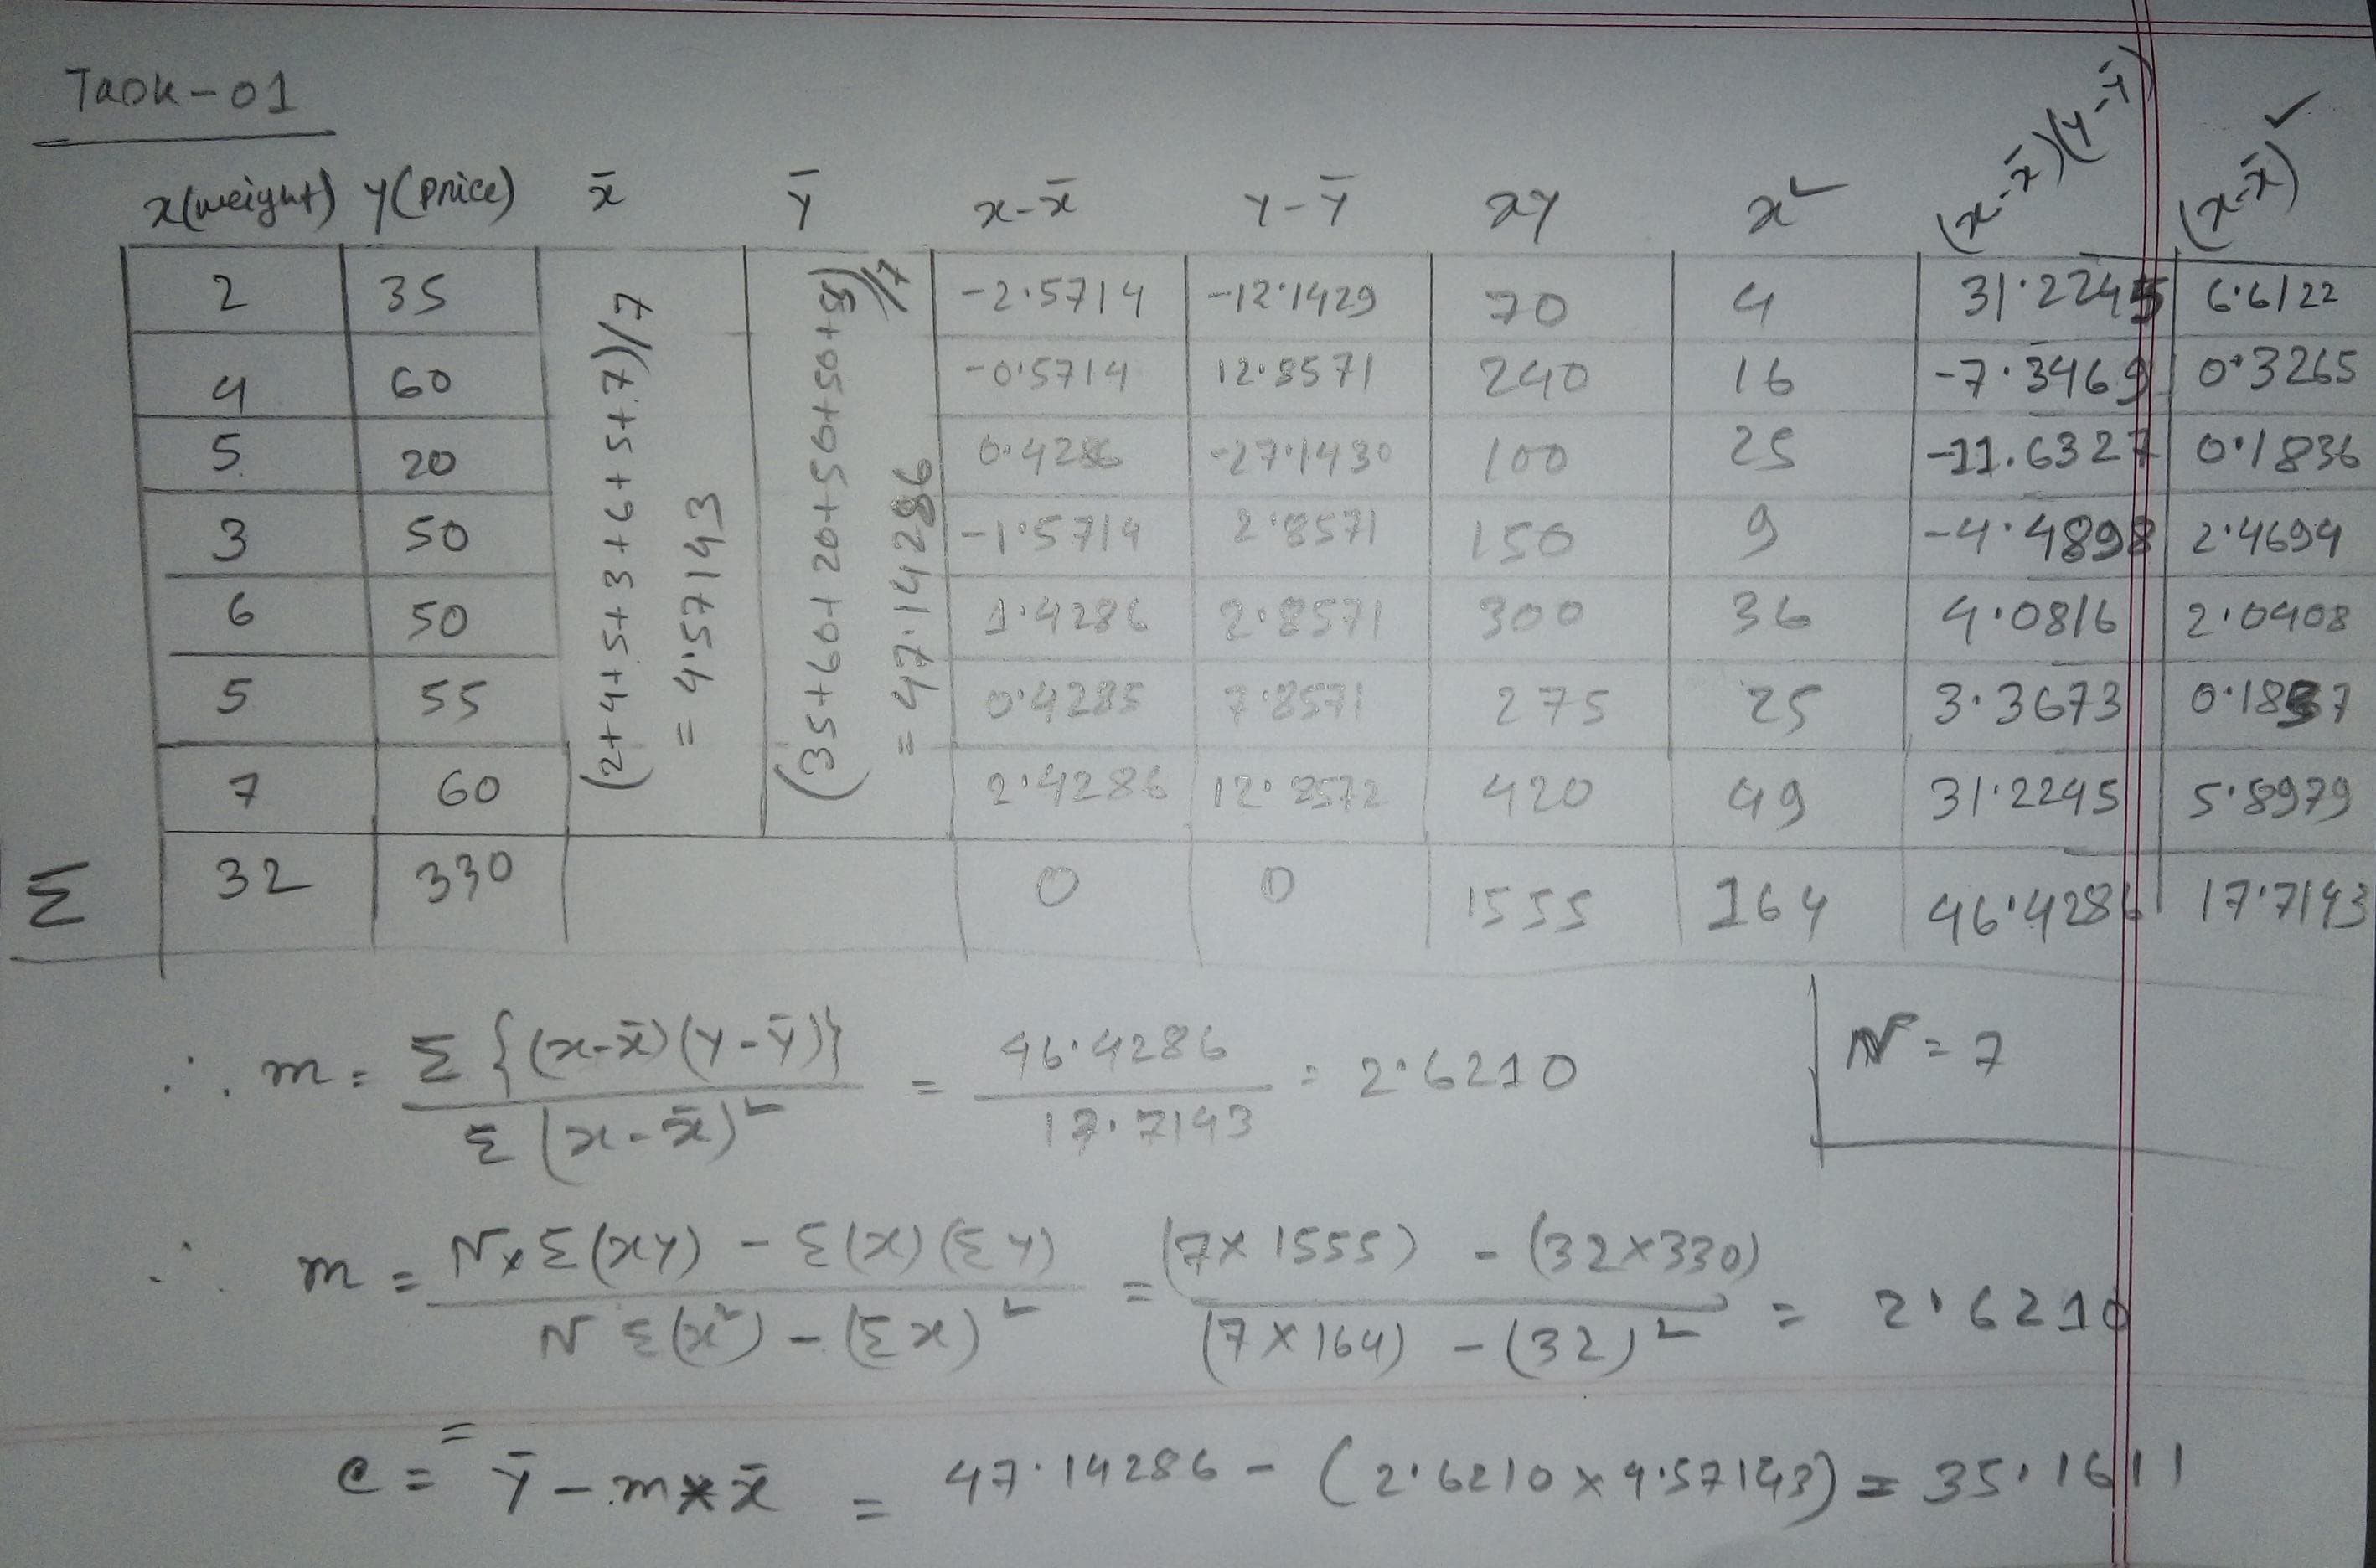 Task-01
x(weight) y(price) x̄ ȳ x-x̄ y-ȳ xy x² (x-x̄)(y-ȳ) (x-x̄)²
2 35 -2.5714 -12.1429 70 4 31.2245 6.6122
4 60 -0.5714 12.8571 240 16 -7.3469 0.3265
5 20 0.4286 -27.1430 100 25 -11.6327 0.1836
3 50 -1.5714 2.8571 150 9 -4.4898 2.4694
6 50 1.4286 2.8571 300 36 4.0816 2.0408
5 55 0.4285 7.8571 275 25 3.3673 0.1837
7 60 2.4286 12.8572 420 49 31.2245 5.8979
(2+4+5+3+6+5+7)/7
= 4.57143
(35+60+20+50+50+55)/7
= 47.14286
Σ 32 330 0 0 1555 164 46.4286 17.7143
∴ m = Σ{(x-x̄)(y-ȳ)} / Σ(x-x̄)² = 46.4286 / 17.7143 = 2.6210
N = 7
∴ m = N×Σ(xy) - Σ(x)(Σy) / NΣ(x²) - (Σx)² = (7×1555) - (32×330) / (7×164) - (32)² = 2.6210
=
c = ȳ - m*x̄ = 47.14286 - (2.6210×4.57143) = 35.1611